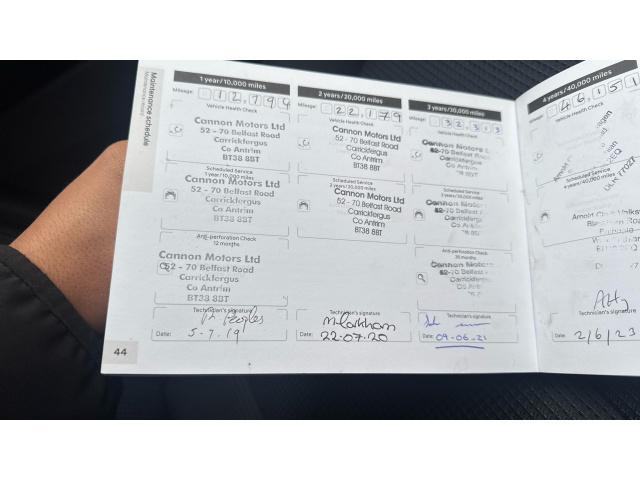 Maintenance schedule
1 year/10,000 miles
Mileage: 12,794
Vehicle Health Check
Cannon Motors Ltd
52 - 70 Belfast Road
Carrickfergus
Co Antrim
BT38 8BT
Scheduled Service
1 year/10,000 miles
Cannon Motors Ltd
52 - 70 Belfast Road
Carrickfergus
Co Antrim
BT38 8BT
Anti-perforation Check
12 months
Cannon Motors Ltd
52 - 70 Belfast Road
Carrickfergus
Co Antrim
BT38 8BT
Technician's signature
Date: 5-7.19
44
2 years/20,000 miles
Mileage: 22,179
Vehicle Health Check
Cannon Motors Ltd
52 - 70 Belfast Road
Carrickfergus
Co Antrim
BT38 8BT
Scheduled Service
2 years/20,000 miles
Cannon Motors Ltd
52 - 70 Belfast Road
Carrickfergus
Co Antrim
BT38 8BT
Technician's signature
Date: 22.07.20
3 years/30,000 miles
Mileage: 32,313
Vehicle Health Check
Cannon Motors
52-70 Belfast Road
Carrickfergus
Co Antrim
Scheduled Service
3 years/30,000 miles
Cannon Motors
52-70 Belfast
Carrickfergus
Co Antrim
Anti-perforation Check
36 months
Cannon Motors
52-70 Belfast
Carrickfergus
Co Antrim
Technician's signature
Date: 09-06-21
4 years/40,000 miles
Mileage: 46,151
Vehicle Health Check
Scheduled Service
4 years/40,000 miles
Arnold Clark
Technician's signature
Date: 2/6/23